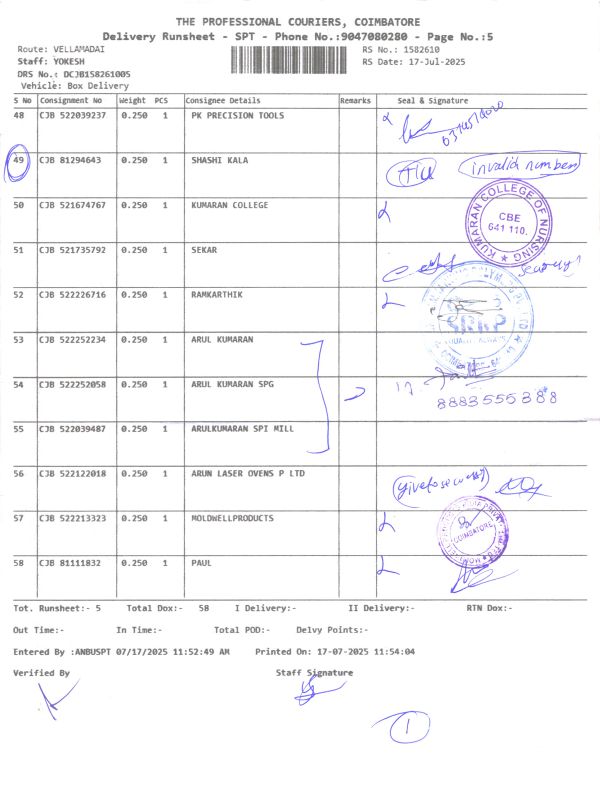 THE PROFESSIONAL COURIERS, COIMBATORE
Delivery Runsheet - SPT - Phone No.:9047080280 - Page No.:5
Route: VELLAMADAI RS No.: 1582610
Staff: YOKESH RS Date: 17-Jul-2025
DRS No.: DCJB158261005
Vehicle: Box Delivery
S No Consignment No Weight PCS Consignee Details Remarks Seal & Signature
48 CJB 522039237 0.250 1 PK PRECISION TOOLS
49 CJB 81294643 0.250 1 SHASHI KALA invalid number
50 CJB 521674767 0.250 1 KUMARAN COLLEGE
KUMARAN COLLEGE OF NURSING
CBE
641 110.
51 CJB 521735792 0.250 1 SEKAR
52 CJB 522226716 0.250 1 RAMKARTHIK
53 CJB 522252234 0.250 1 ARUL KUMARAN
54 CJB 522252058 0.250 1 ARUL KUMARAN SPG
8883555388
55 CJB 522039487 0.250 1 ARULKUMARAN SPI MILL
56 CJB 522122018 0.250 1 ARUN LASER OVENS P LTD
57 CJB 522213323 0.250 1 MOLDWELLPRODUCTS
COIMBATORE
58 CJB 81111832 0.250 1 PAUL
Tot. Runsheet:- 5 Total Dox:- 58 I Delivery:- II Delivery:- RTN Dox:-
Out Time:- In Time:- Total POD:- Delvy Points:-
Entered By :ANBUSPT 07/17/2025 11:52:49 AM Printed On: 17-07-2025 11:54:04
Verified By Staff Signature
1